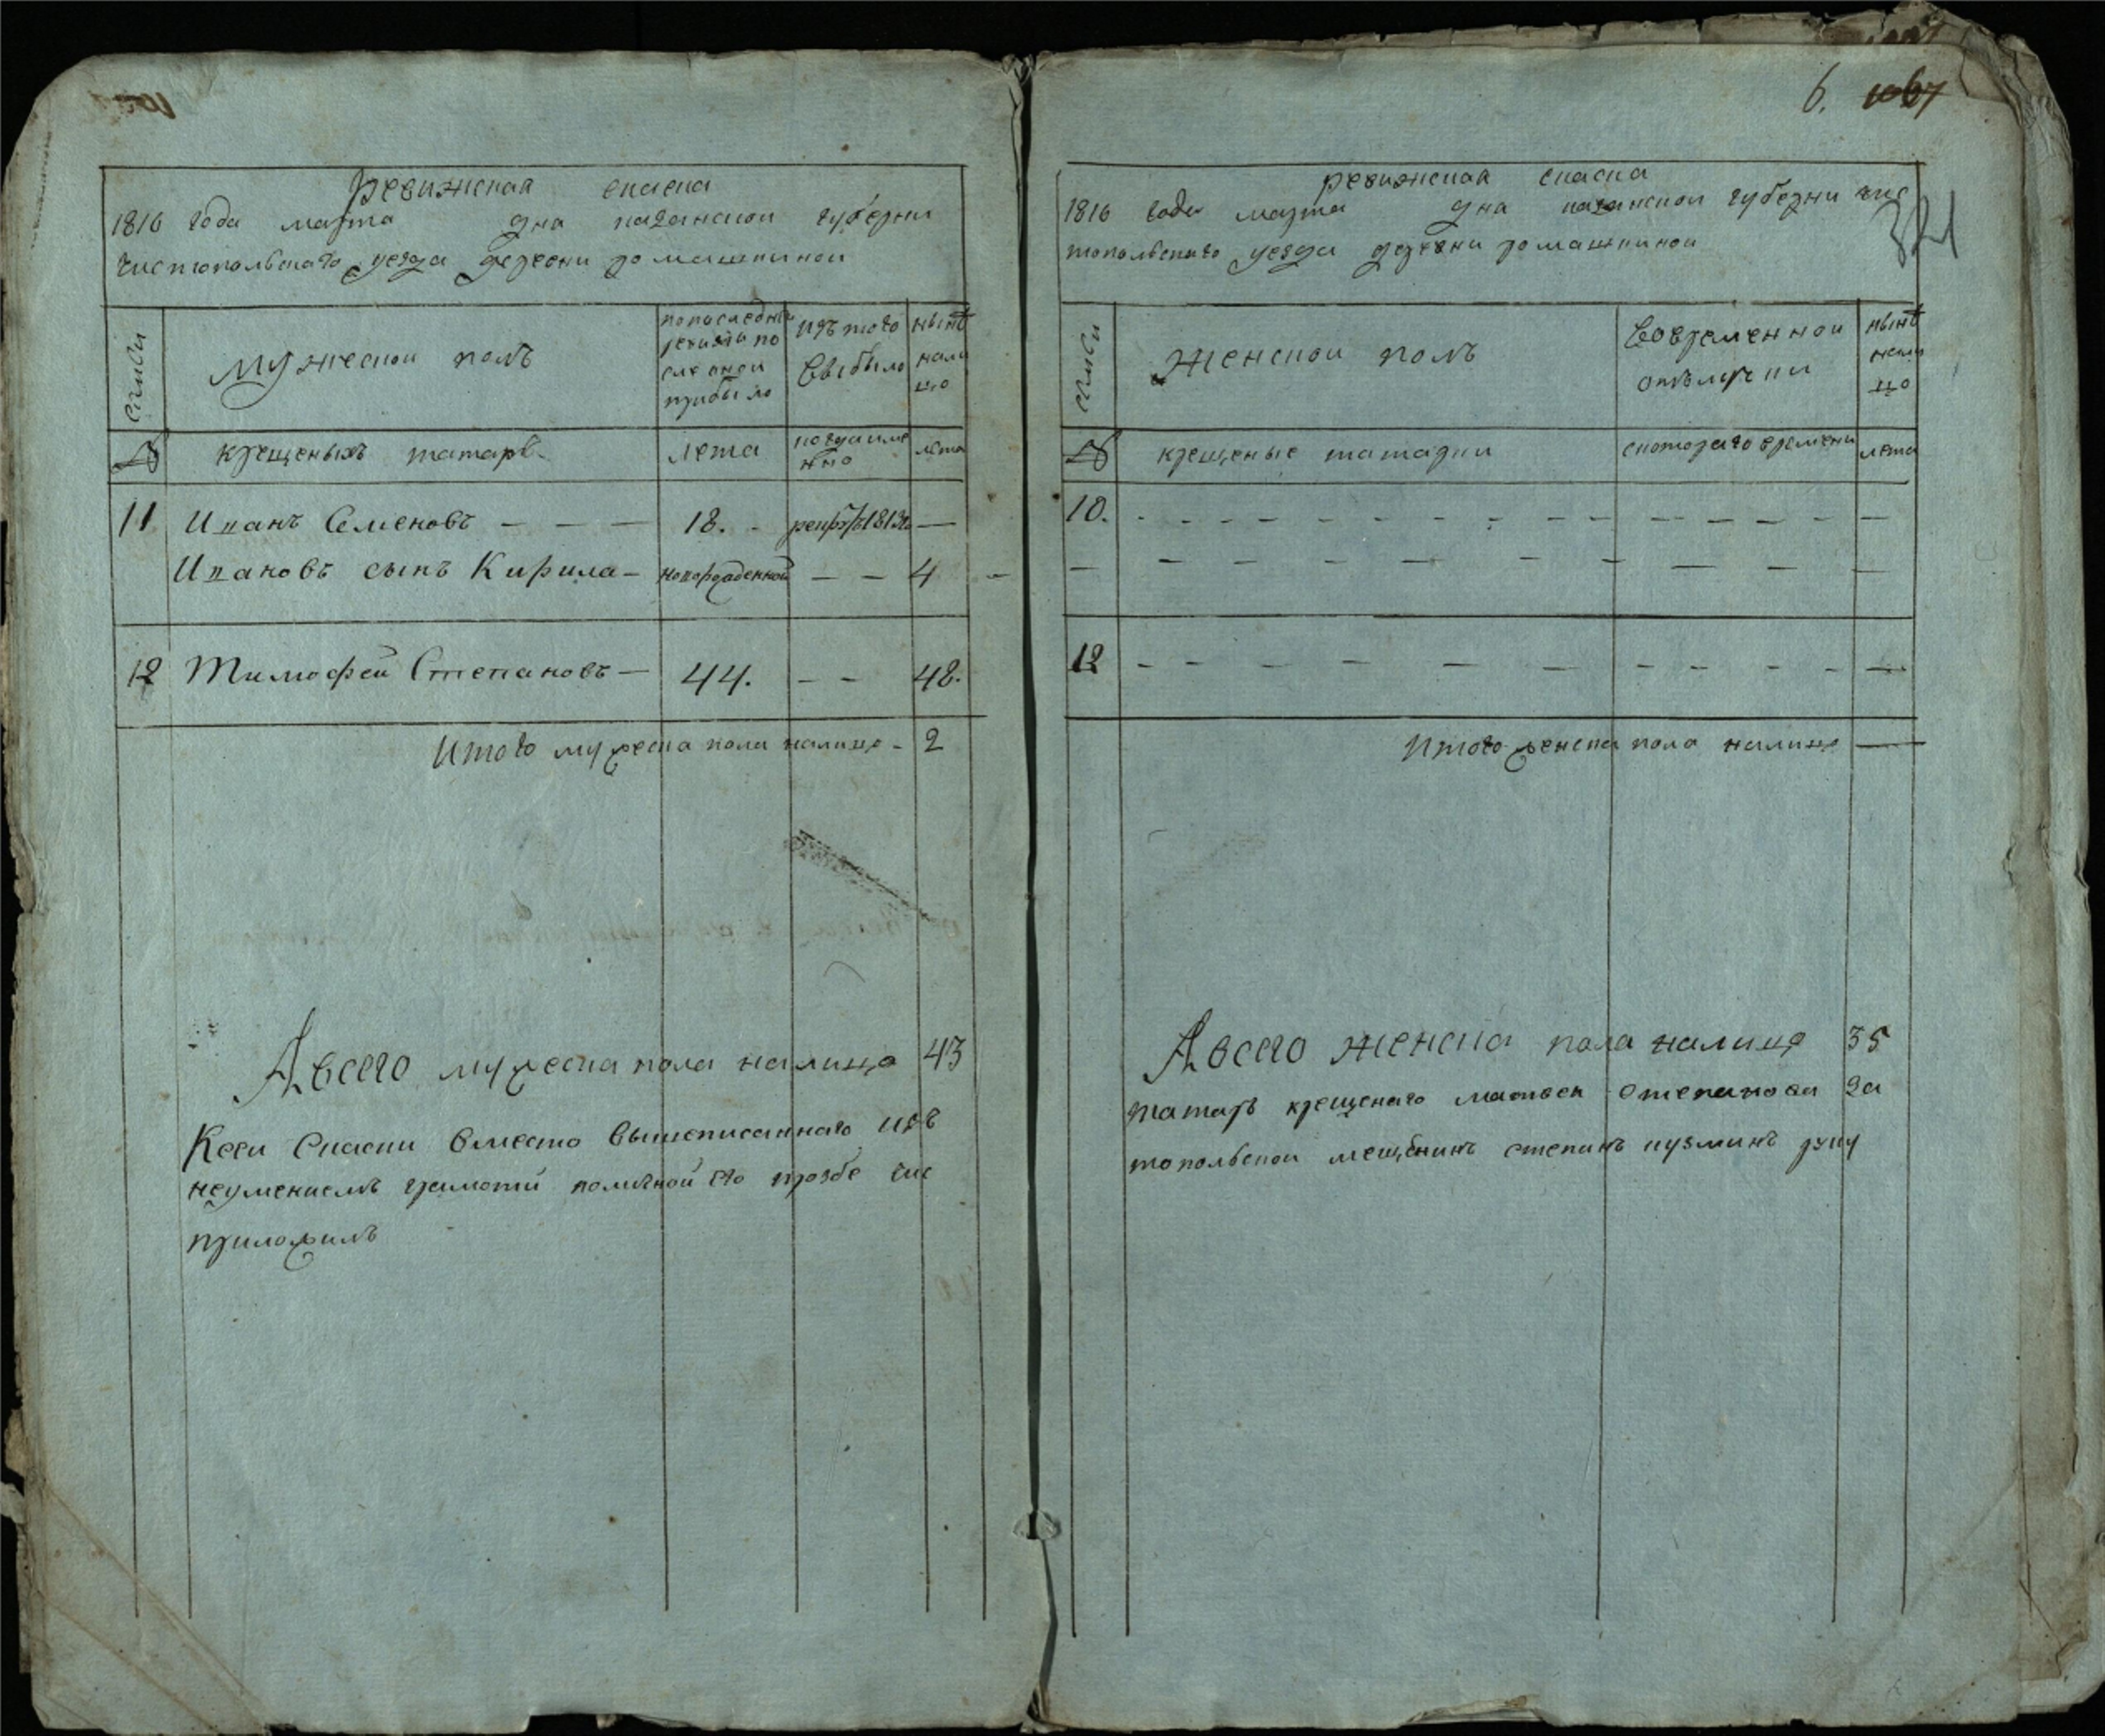 ревижская скаска
1816 года марта дна казанской губерни
чистопольскаго уезда деревни ромашкиной
семьи
мужеской полъ
попоследней ревизии по оной прибыло
изъ того выбыло
нынѣ налицо
№
крещеныхъ татаръ
лета
когда имянно
лета
11 Иванъ Семеновъ — — — 18. - рекрут 1813го —
Ивановъ сынъ Кирила — новорожденной — — 4 -
12 Тимофей Степановъ — 44. — — 48.
Итого мужеска пола налицо - 2
А всего мужеска пола налицо 43
Ксеи скаски вместо вышеписаннаго изъ
неумениемъ грамоти поличной его прозбе чис
приложилъ
6. 1067
ревижская скаска
1816 года марта дна казанской губерни чис
топольскаго уезда деревни ромашкиной
семьи
Женской полъ
Вовременной отълучки
нынѣ налицо
№
крещеные татарки
скотораго времени
лета
10. - - - - - - - - - - - - - - -
— — — — — — — — — —
12 - - - - - - - - - - - -
Итого женска пола налицо —
А всего женска пола налицо 35
татаръ крещенаго матвея степанова за
топольской мещенинъ степанъ кузминъ руку